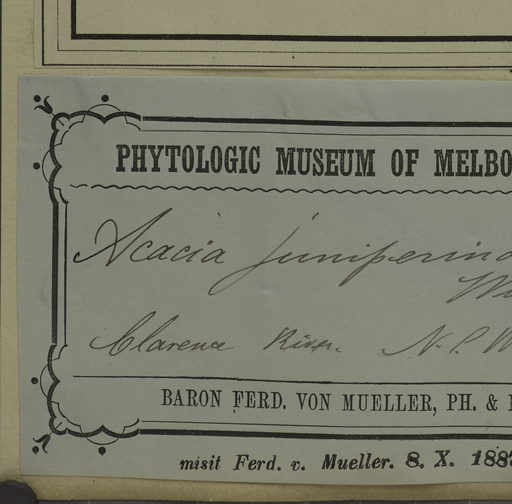 PHYTOLOGIC MUSEUM OF MELBO
Acacia juniperina
Clarence River. N.S.W
BARON FERD. VON MUELLER, PH. &
misit Ferd. v. Mueller. 8. X. 188